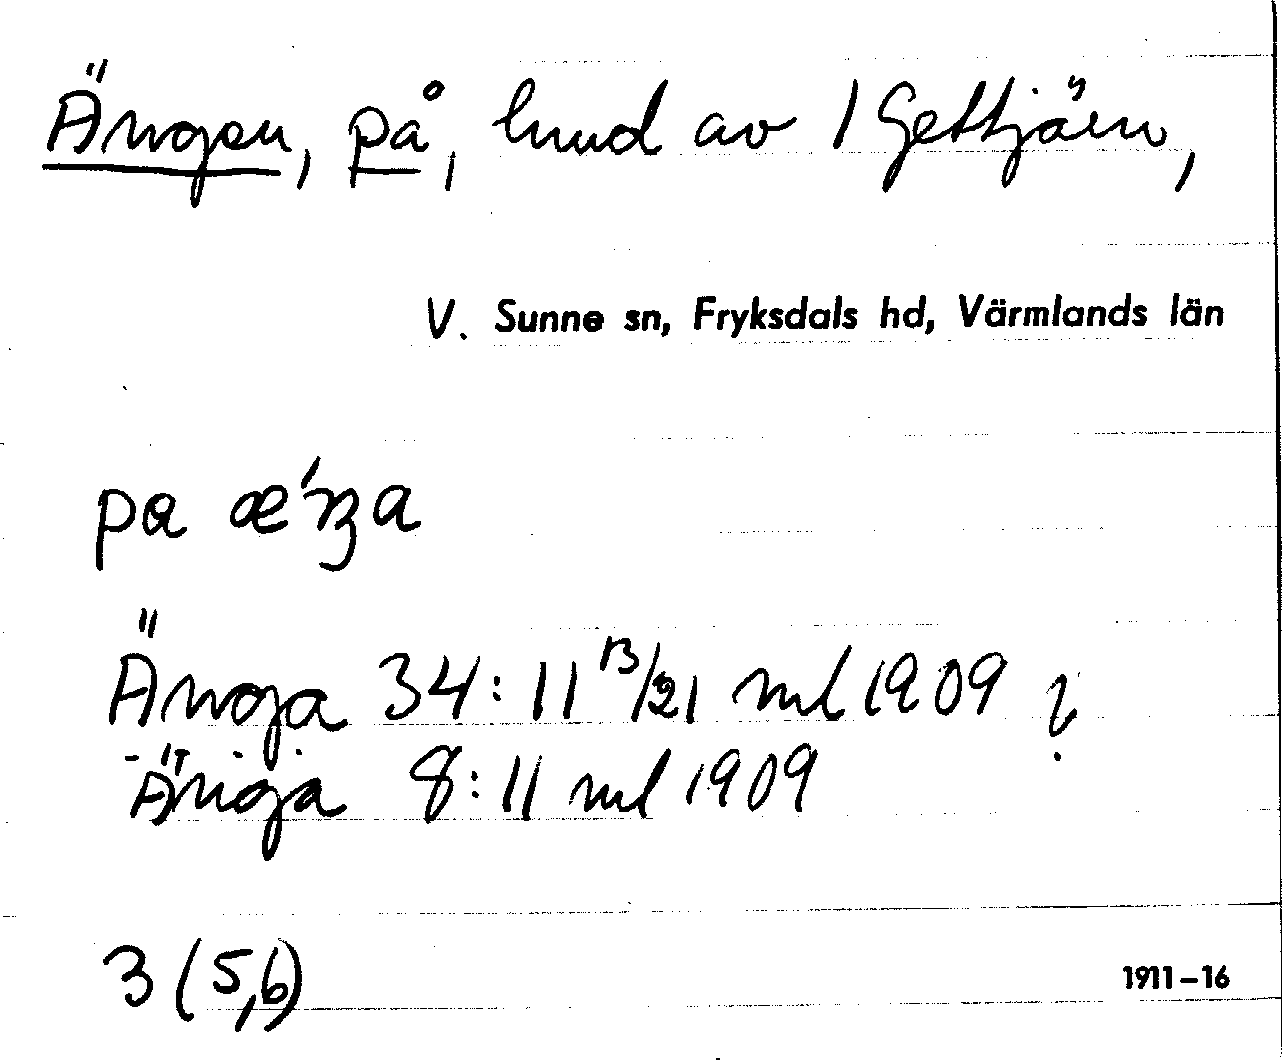 Ängen, på, hmd av 1 Gettjärn,
V. Sunne sn, Fryksdals hd, Värmlands län
pa æ´ŋa
Änga 34:11 13/21 ml 1909 ?
Änga 8:11 ml 1909
3 (5,6)
1911–16